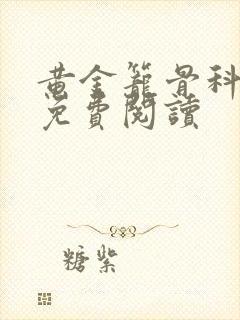 黃金籠骨科
免費閱讀
糖紫